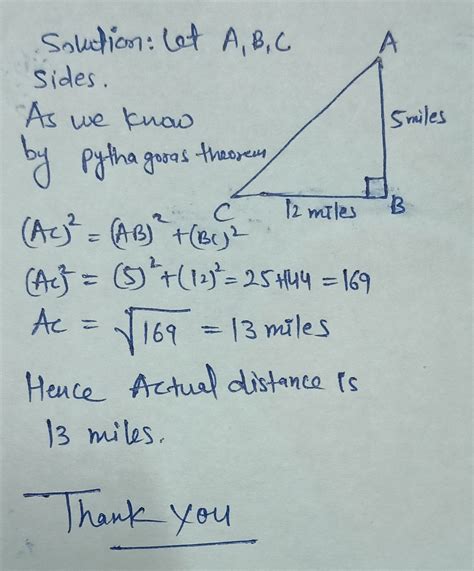 Solution: Let A, B, C
sides.
As we know
by pythagoras theorem
A
5 miles
C
12 miles
B
(AC)² = (AB)² + (BC)²
(AC)² = (5)² + (12)² = 25+144 = 169
AC = √169 = 13 miles
Hence Actual distance is
13 miles.
Thank you